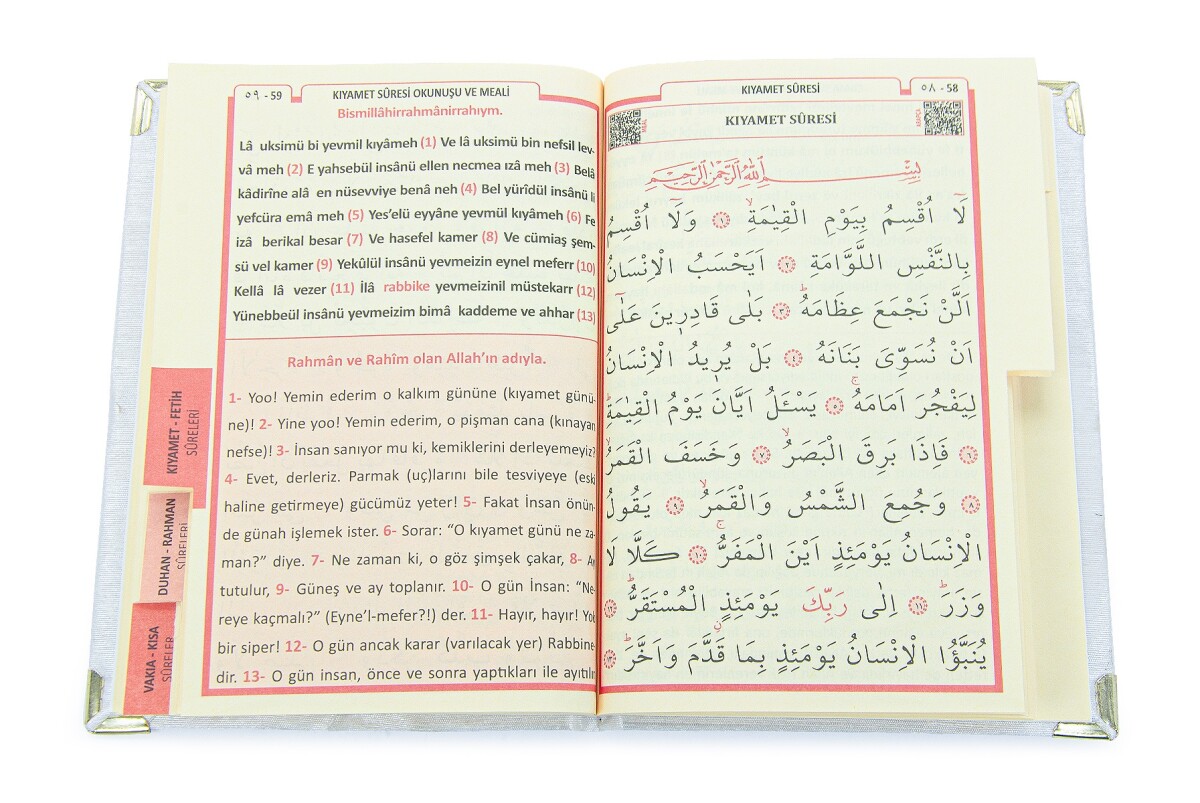 ٥٩ - 59
KIYAMET SÛRESİ OKUNUŞU VE MEALİ
Bismillâhirrahmânirrahıym.
Lâ uksimü bi yevmil kıyâmeh (1) Ve lâ uksimü bin nefsil lev-
vâ meh (2) E yahsebül insânü ellen necmea ızâ meh (3) Belâ
kâdirîne alâ en nüsevviye benâ neh (4) Bel yürîdül insânü li
yefcüra emâ meh (5) Yes'elü eyyâne yevmül kıyâmeh (6) Fe
izâ berikal besar (7) Ve hasefel kamer (8) Ve cümiaş şem-
sü vel kamer (9) Yekûlül insânü yevmeizin eynel meferr (10)
Kellâ lâ vezer (11) İlâ rabbike yevmeizinil müstekarr (12)
Yünebbeül insânü yevmeizim bimâ kaddeme ve ahhar (13)
Rahmân ve Rahîm olan Allah'ın adıyla.
1- Yoo! Yemin ederim o kalkım gününe (kıyamet günü-
ne)! 2- Yine yoo! Yemin ederim, o pişman cana (kınayan
nefse)! 3- İnsan sanıyor mu ki, kemiklerini derleyemeyiz?
4- Evet, derleriz. Parmak (uç)larını bile tesviyeye (eski
haline getirmeye) gücümüz yeter! 5- Fakat İnsan önün-
de günah işlemek ister. 6- Sorar: "O kıyamet günü ne za-
man?" diye. 7- Ne zaman ki, o göz şimşek çakar, 8- Ay
tutulur, 9- Güneş ve ay toplanır. 10- O gün İnsan: "Ne-
reye kaçmalı?" (Eyne'l-mefer?!) der. 11- Hayır, hayır! Yok
bir siper! 12- O gün ancak karar (varılacak yer) Rabbine-
dir. 13- O gün insan, önce ve sonra yaptıkları ile ayıtılır
KIYAMET - FETİH
SÛRELERİ
DUHAN - RAHMAN
SÛRELERİ
VAKIA - KISA
SÛRELER
KIYAMET SÛRESİ
٥٨ - 58
KIYAMET SÛRESİ
بِسْمِ اللّٰهِ الرَّحْمٰنِ الرَّحٖيمِ
لَٓا اُقْسِمُ بِيَوْمِ الْقِيٰمَةِۙ ﴿١﴾ وَلَٓا اُقْسِمُ
بِالنَّفْسِ اللَّوَّامَةِ ﴿٢﴾ اَيَحْسَبُ الْاِنْسَانُ
اَلَّنْ نَجْمَعَ عِظَامَهُؕ ﴿٣﴾ بَلٰى قَادِرٖينَ عَلٰٓى
اَنْ نُسَوِّىَ بَنَانَهُ ﴿٤﴾ بَلْ يُرٖيدُ الْاِنْسَانُ
لِيَفْجُرَ اَمَامَهُۚ ﴿٥﴾ يَسْـَٔلُ اَيَّانَ يَوْمُ الْقِيٰمَةِؕ
﴿٦﴾ فَاِذَا بَرِقَ الْبَصَرُۙ ﴿٧﴾ وَخَسَفَ الْقَمَرُۙ
﴿٨﴾ وَجُمِعَ الشَّمْسُ وَالْقَمَرُۙ ﴿٩﴾ يَقُولُ
الْاِنْسَانُ يَوْمَئِذٍ اَيْنَ الْمَفَرُّۚ ﴿١٠﴾ كَلَّا لَا
وَزَرَؕ ﴿١١﴾ اِلٰى رَبِّكَ يَوْمَئِذٍ الْمُسْتَقَرُّؕ ﴿١٢﴾
يُنَبَّؤُا الْاِنْسَانُ يَوْمَئِذٍ بِمَا قَدَّمَ وَاَخَّرَؕ ﴿١٣﴾